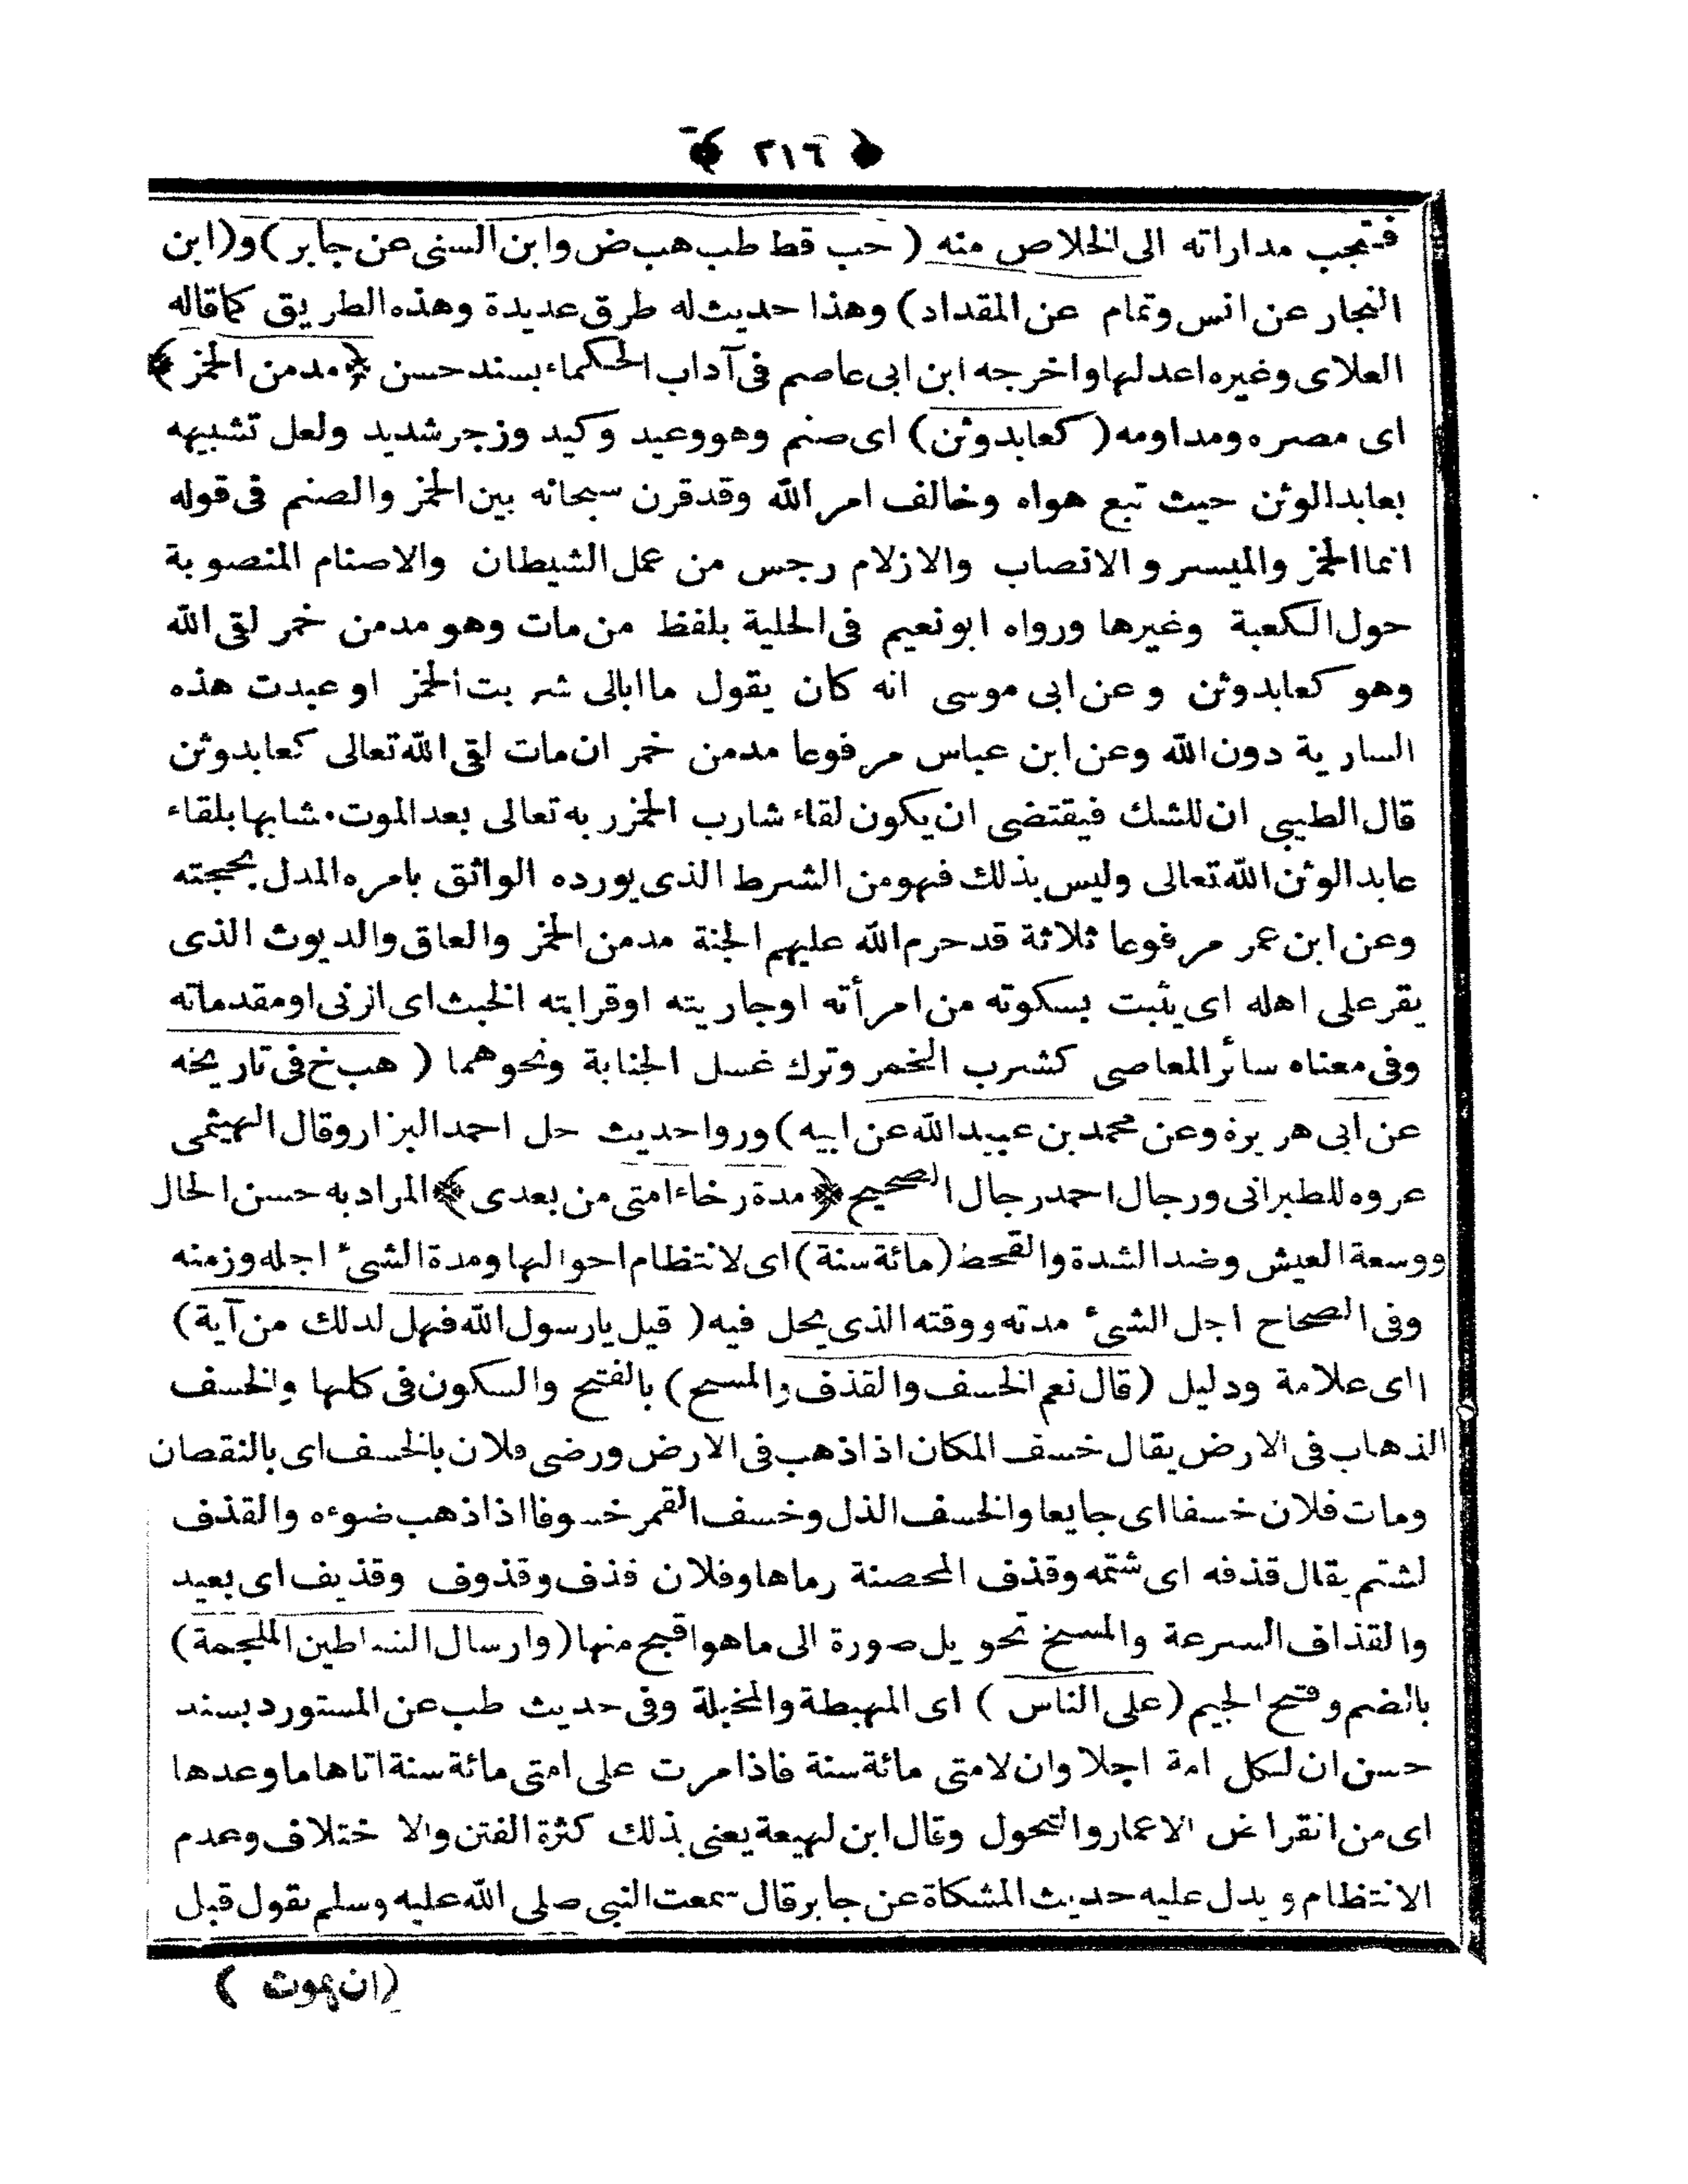 ﴿ ٢١٦ ﴾
فتجب مداراته الى الخلاص منه ( حب قط طب هب ض وابن السنى عن جابر ) و (ابن
النجار عن انس وتمام عن المقداد) وهذا حديث له طرق عديدة وهذه الطريق كما قاله
العلاى وغيره اعدلها واخرجه ابن ابى عاصم فى آداب الحكماء بسند حسن ﴿ مدمن الخمر ﴾
اى مصره ومداومه ( كعابد وثن ) اى صنم وهو وعيد وكيد وزجر شديد ولعل تشبيهه
بعابد الوثن حيث تبع هواه وخالف امر الله وقد قرن سبحانه بين الخمر والصنم فى قوله
انما الخمر والميسر و الانصاب والازلام رجس من عمل الشيطان والاصنام المنصوبة
حول الكعبة وغيرها ورواه ابو نعيم فى الحلية بلفظ من مات وهو مدمن خمر لقى الله
وهو كعابد وثن و عن ابى موسى انه كان يقول ما ابالى شربت الخمر او عبدت هذه
السارية دون الله وعن ابن عباس مرفوعا مدمن خمر ان مات لقى الله تعالى كعابد وثن
قال الطيبى ان للشك فيقتضى ان يكون لقاء شارب الخمر ربه تعالى بعد الموت مشابها بلقاء
عابد الوثن الله تعالى وليس بذلك فهو من الشرط الذى يورده الواثق بامره المدل بحجته
وعن ابن عمر مرفوعا ثلاثة قد حرم الله عليهم الجنة مدمن الخمر والعاق والديوث الذى
يقر على اهله اى يثبت بسكوته من امرأته او جاريته او قرابته الخبث اى الزنى او مقدماته
وفى معناه سائر المعاصى كشرب الخمر وترك غسل الجنابة ونحوهما ( هب خ فى تاريخه
عن ابى هريرة وعن محمد بن عبيد الله عن ابيه ) وروا حديث حل احمد البزار وقال الهيثمى
عروه للطبرانى ورجال احمد رجال الصحيح ﴿ مدة رخاء امتى من بعدى ﴾ المراد به حسن الحال
ووسعة العيش وضد الشدة والقحط (مائة سنة) اى لانتظام احوالها ومدة الشىء اجله وزمنه
وفى الصحاح اجل الشىء مدته ووقته الذى يحل فيه ( قيل يارسول الله فهل لدلك من آية )
ااى علامة ودليل (قال نعم الخسف والقذف والمسح ) بالفتح والسكون فى كلها والخسف
الذهاب فى الارض يقال خسف المكان اذا ذهب فى الارض ورضى فلان بالخسف اى بالنقصان
ومات فلان خسفا اى جايعا والخسف الذل وخسف القمر خسوفا اذا ذهب ضوءه والقذف
لشتم يقال قذفه اى شتمه وقذف المحصنة رماها وفلان قذف وقذوف وقذيف اى بعيد
والقذاف السرعة والمسخ تحويل صورة الى ما هو اقبح منها (وارسال الشياطين الملجمة )
بالضم وفتح الجيم (على الناس ) اى المهبطة والمخبلة وفى حديث طب عن المستورد بسند
حسن ان لكل امة اجلا وان لامتى مائة سنة فاذا مرت على امتى مائة سنة اتاها ما وعدها
اى من انقراض الاعمار والتحول وقال ابن لهيعة يعنى بذلك كثرة الفتن والاختلاف وعدم
الانتظام ويدل عليه حديث المشكاة عن جابر قال سمعت النبى صلى الله عليه وسلم يقول قبل
(ان يموت )